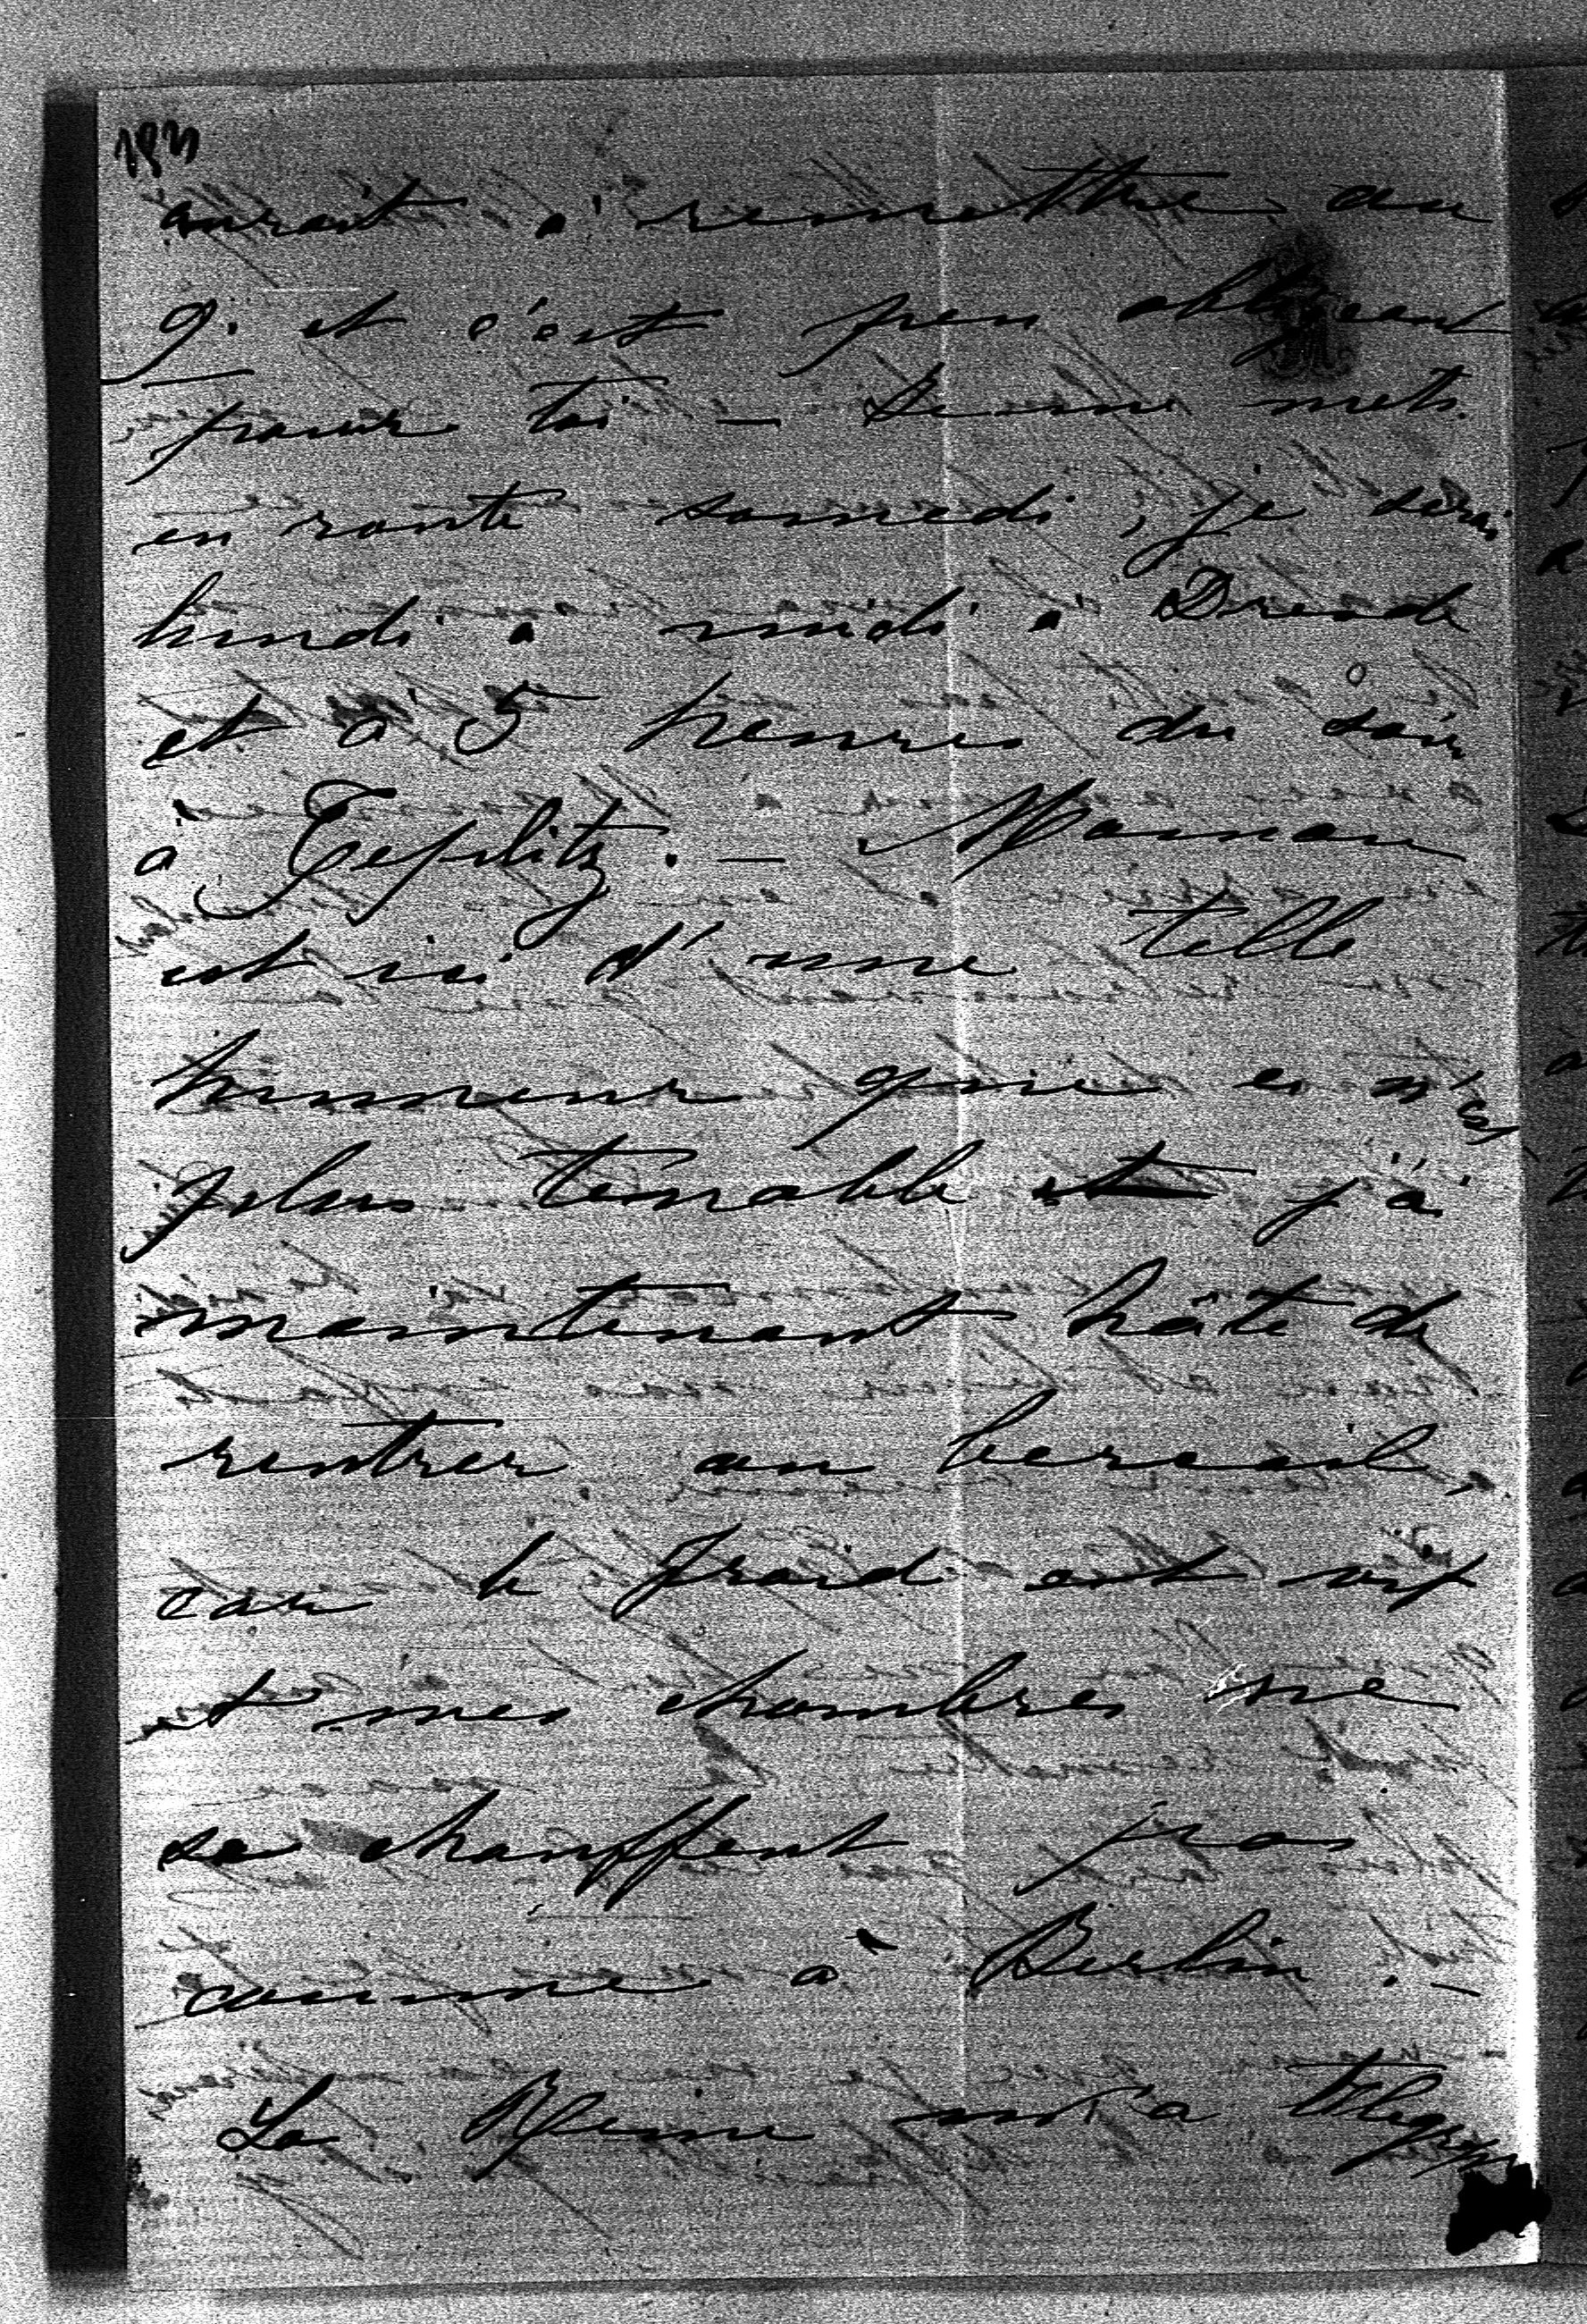 183
aurait à remettre au
g. et c'est peu obligeant
pour toi — Je me mets
en route samedi, je serai
lundi à midi à Dresde
et à 5 heures du soir
à Teplitz. — Maman
est ici d'une telle
humeur que ce n'est
plus tenable et j'ai
maintenant hâte de
rentrer au bercail,
car le froid est vif
et mes chambres ne
se chauffent pas
comme à Berlin. —
La Reine m'a